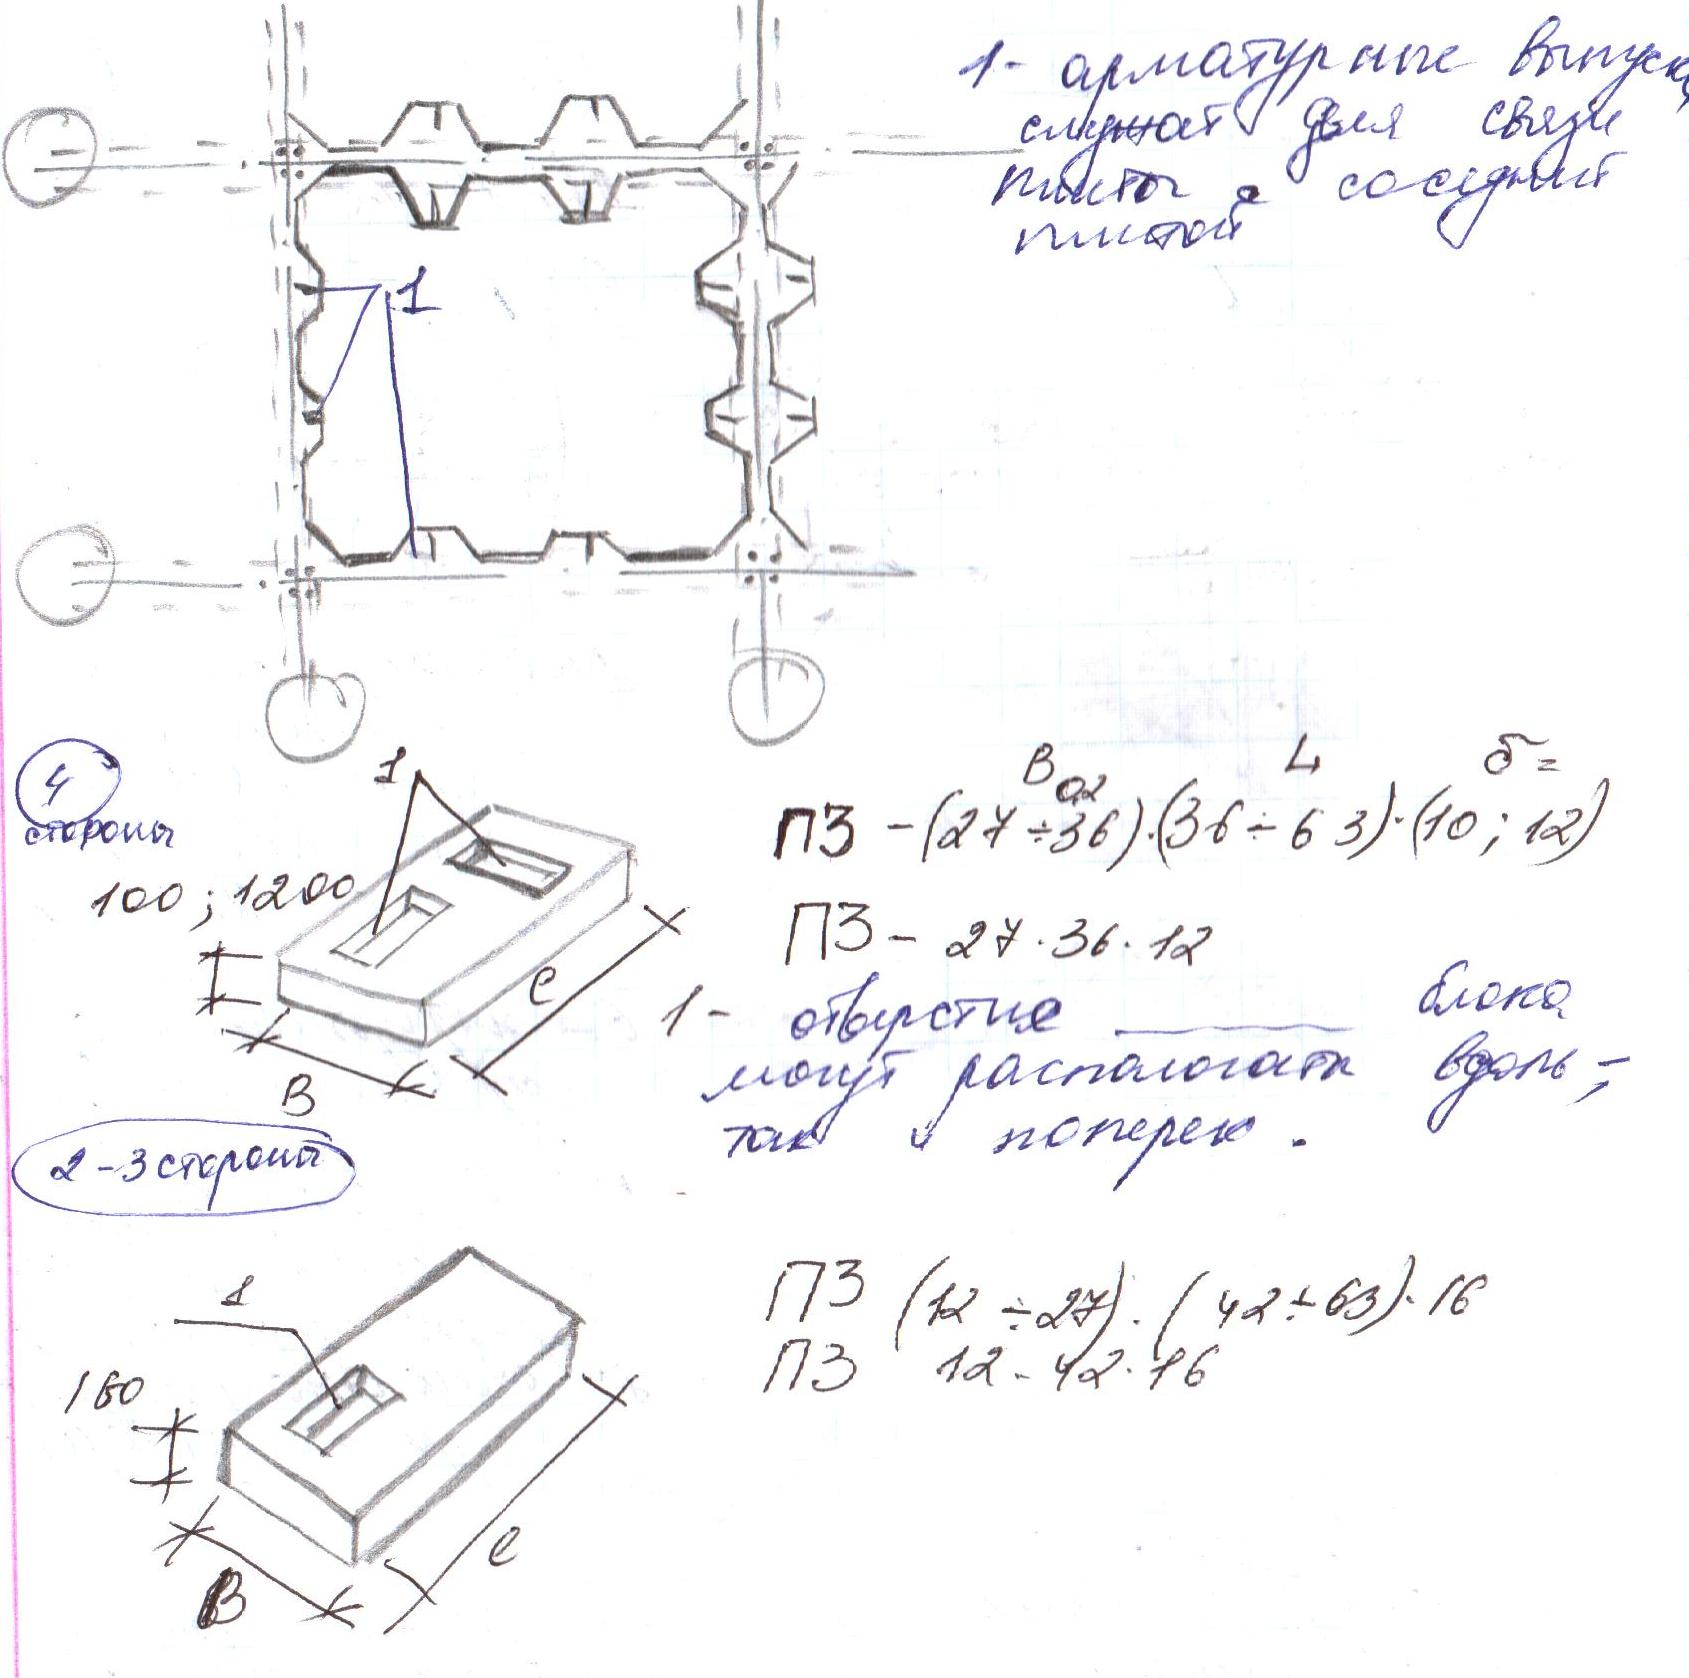 1- арматурные выпуски
служат для связи
плиты с соседней
плитой
1
4
стороны
1
100 ; 1200
B
e
B 0,2 L δ =
ПЗ - (27 ÷ 36) · (36 ÷ 63) · (10 ; 12)
ПЗ - 27 · 36 · 12
1 - отверстие ______ блока
могут распологать вдоль -,
так и поперек .
2 - 3 стороны
1
160
B
e
ПЗ (12 ÷ 27) · (42 ÷ 63) · 16
ПЗ 12 - 42 · 16